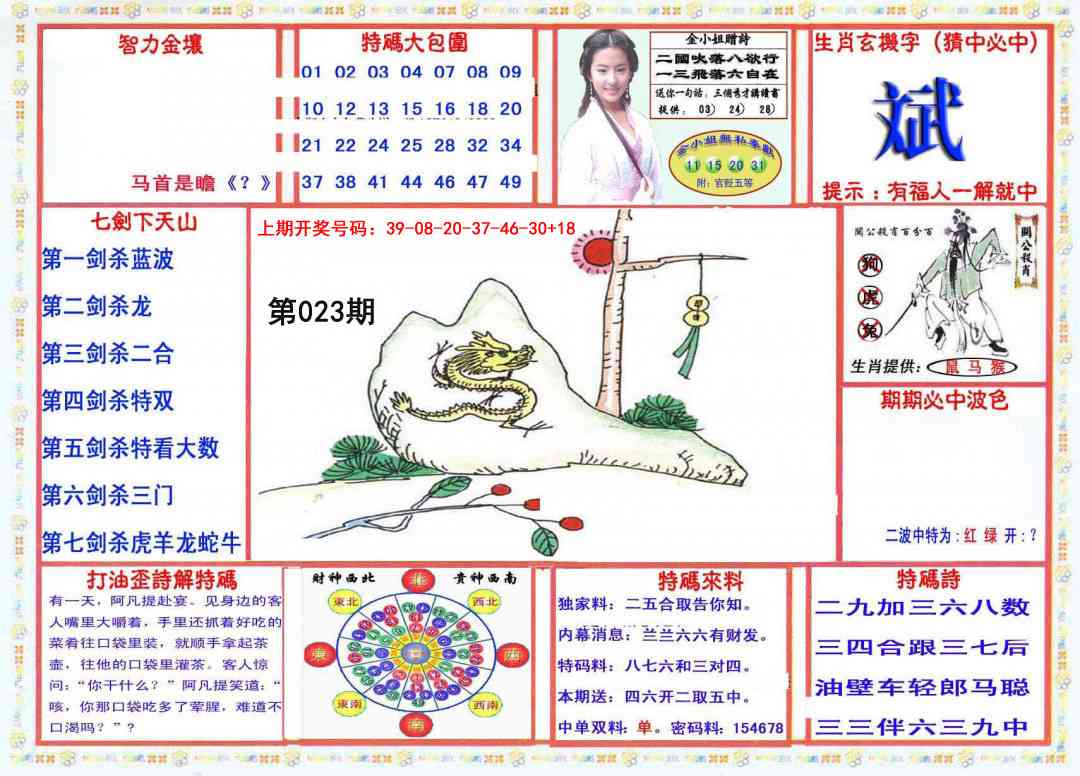 智力金壤
马首是瞻《？》
特碼大包圍
01 02 03 04 07 08 09
10 12 13 15 16 18 20
21 22 24 25 28 32 34
37 38 41 44 46 47 49
金小姐贈詩
二國吹落八欲行
一三飛落六自在
送你一句話：三個秀才講讀書
提供：03）24）28）
金小姐無私奉獻
11 15 20 31
附：官貶五等
生肖玄機字（猜中必中）
斌
提示：有福人一解就中
七劍下天山
第一剑杀蓝波
第二剑杀龙
第三剑杀二合
第四剑杀特双
第五剑杀特看大数
第六剑杀三门
第七剑杀虎羊龙蛇牛
上期开奖号码：39-08-20-37-46-30+18
第023期
關公殺肖百分百
關公殺肖
狗
虎
兔
生肖提供：鼠 马 猴
期期必中波色
二波中特为：红 绿 开：？
打油歪詩解特碼
有一天，阿凡提赴宴。见身边的客
人嘴里大嚼着，手里还抓着好吃的
菜肴往口袋里装，就顺手拿起茶
壶，往他的口袋里灌茶。客人惊
问：“你干什么？”阿凡提笑道：“
咳，你那口袋吃多了荤腥，难道不
口渴吗？”？
財神西北
貴神西南
北
東北
西北
東
西
東南
西南
南
特碼來料
独家料：二五合取告你知。
内幕消息：兰兰六六有财发。
特码料：八七六和三对四。
本期送：四六开二取五中。
中单双料：单。密码料：154678
特碼詩
二九加三六八数
三四合跟三七后
油壁车轻郎马聪
三三伴六三九中